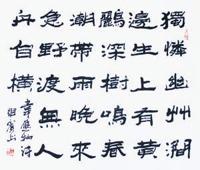 獨憐幽艸澗
邊生上有黃
鸝深樹鳴春
潮帶雨晚來
急野渡無人
舟自橫
韋應物詩